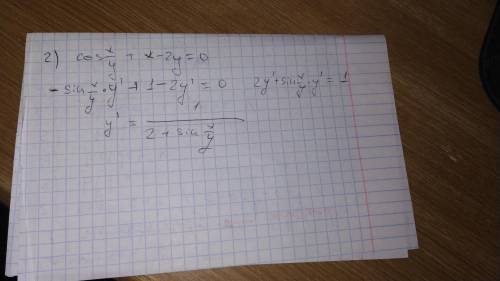 2) cos x/y + x - 2y = 0
- sin x/y · y' + 1 - 2y' = 0    2y' + sin x/y · y' = 1
y' = 1 / (2 + sin x/y)